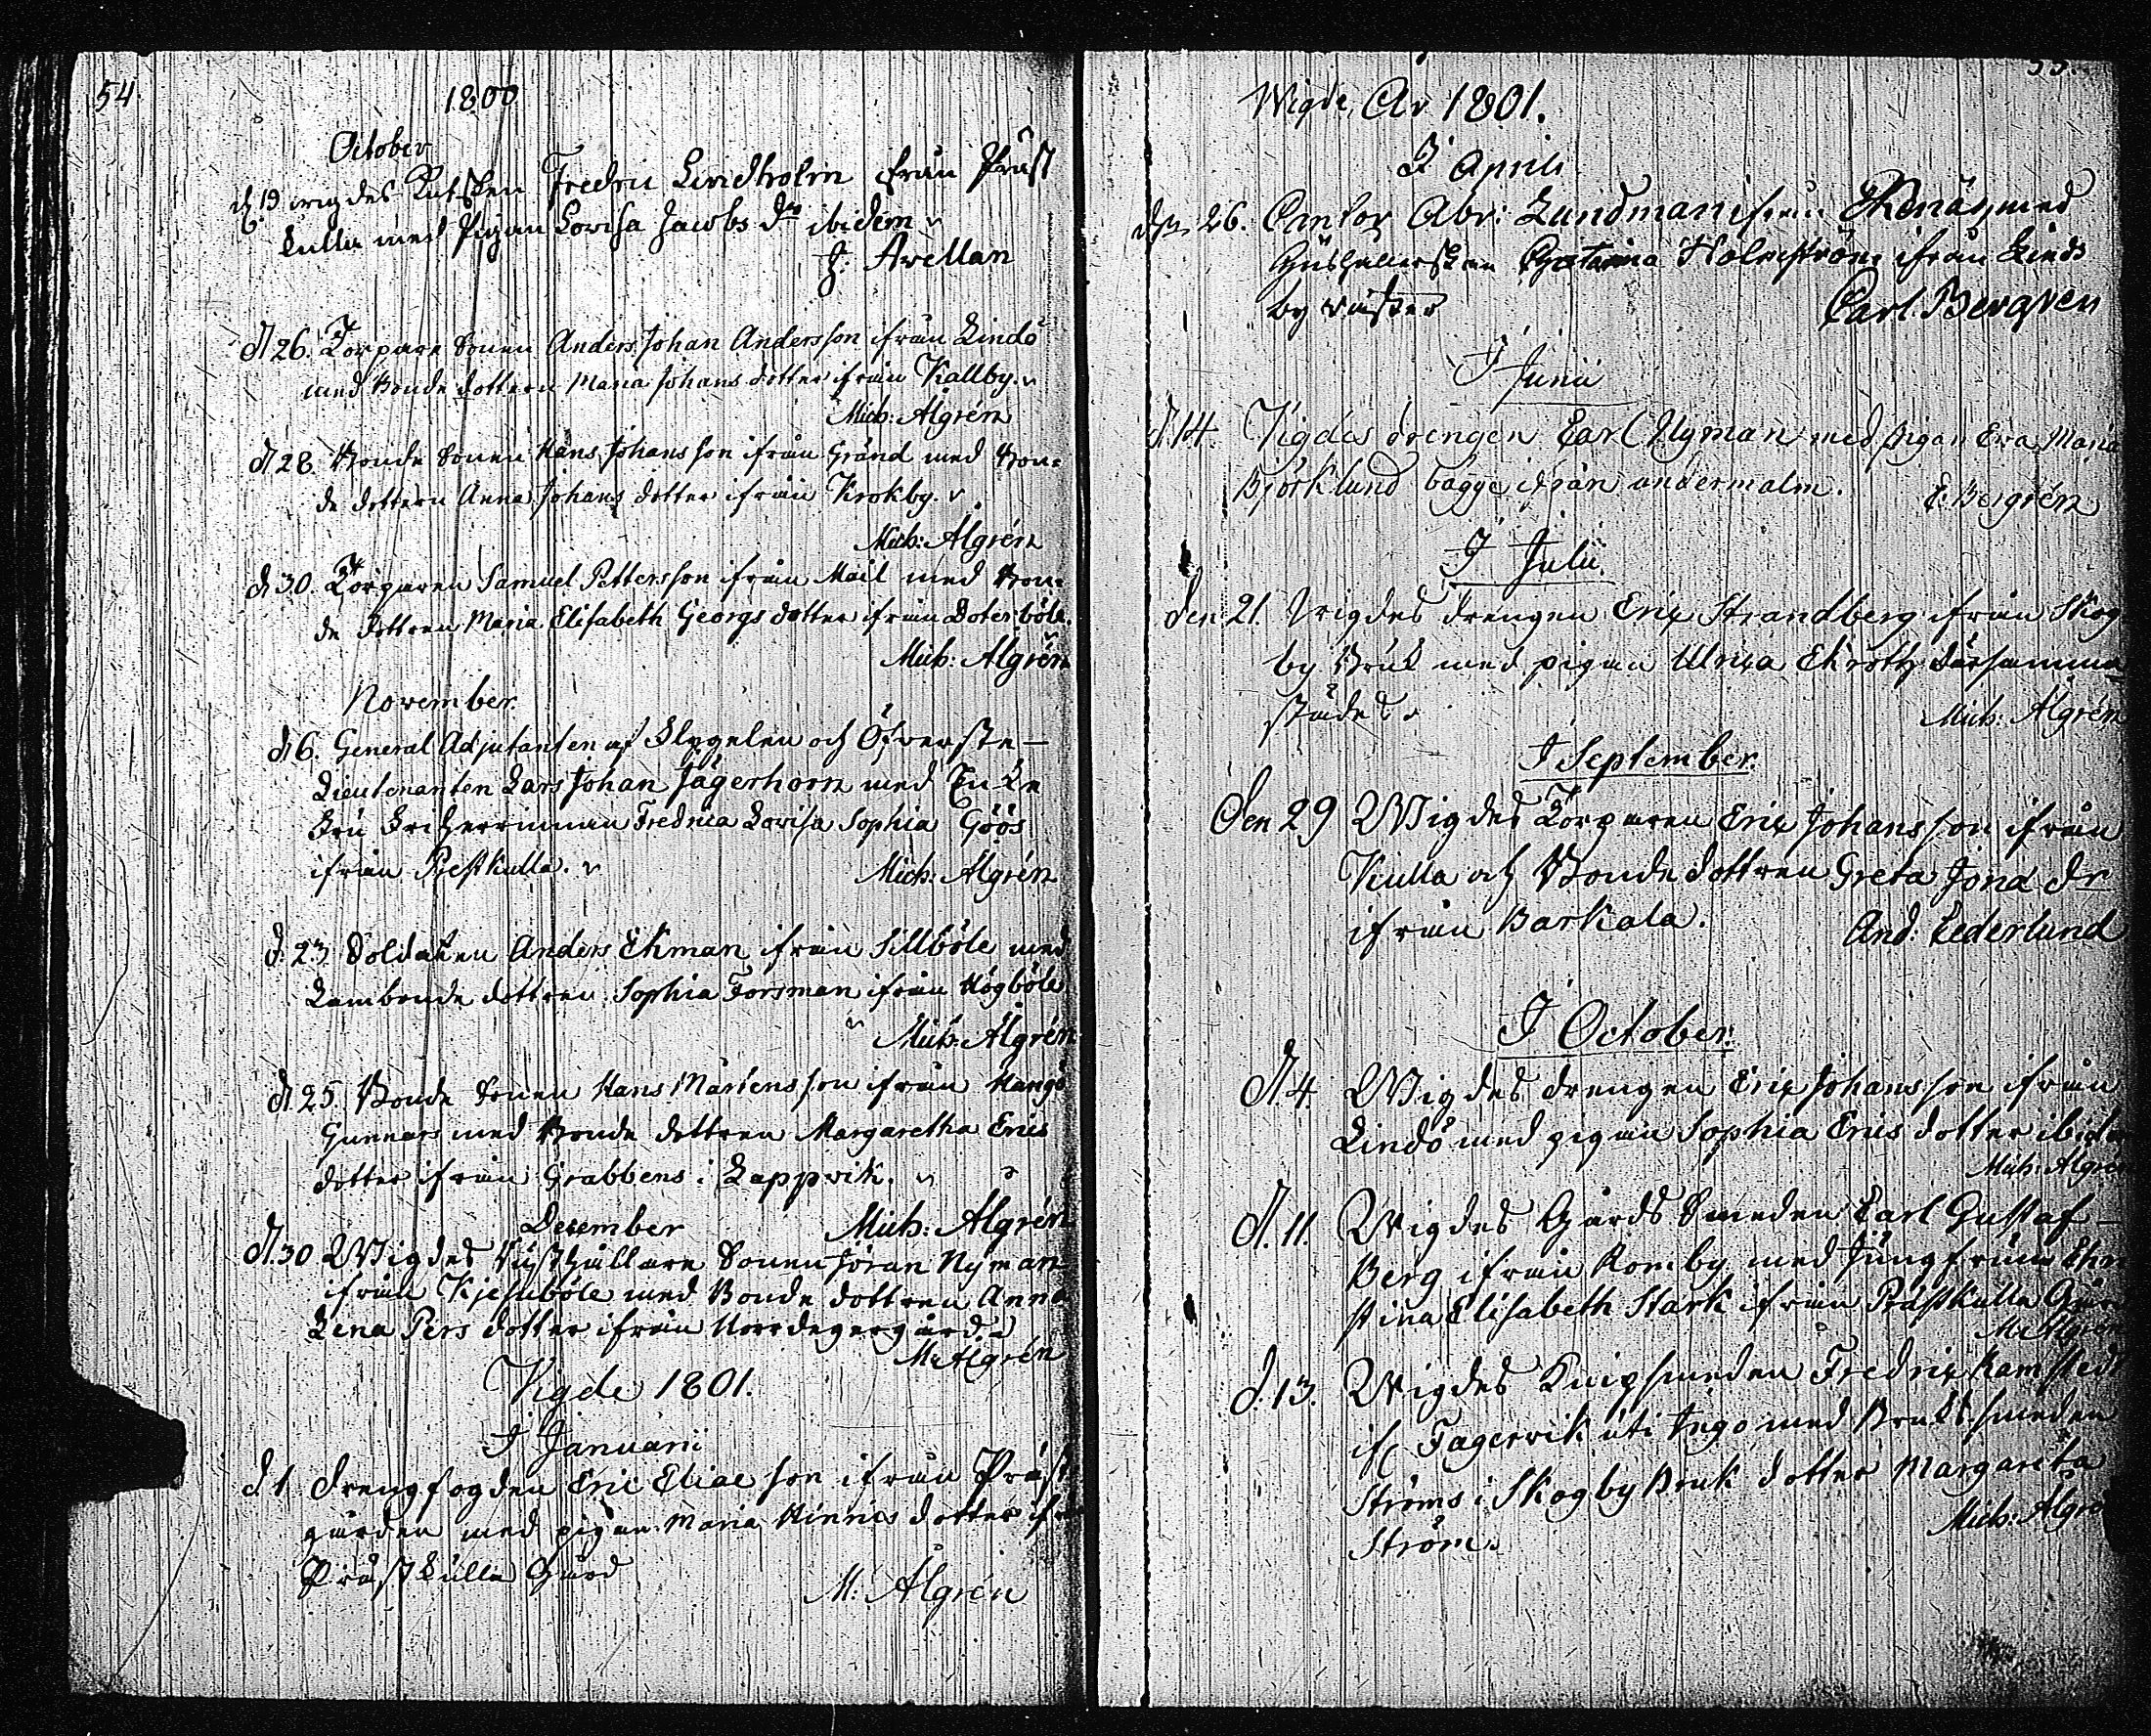 54.
1800
October
d. 19 wigdes Kusken Fredric Lindholm från Präst
kulla med Pigan Lovisa Jacobs dr ibidem
J. Avellan
d. 26. Torpare Sonen Anders Johan Andersson ifrån Lindö
med Bonde dottern Maria Johans dotter ifrån Kallby.
Mich: Algrén
d. 28. Bonde Sonen Hans Johansson ifrån Gränd med Bon=
de dottern Anna Johans dotter ifrån Krokby.
Mich: Algrén
d. 30. Torparen Samuel Pettersson ifrån Mail med Bon=
de dottren Maria Elisabeth Georgs dotter ifrån Doterböle.
Mich: Algrén
November.
d. 6. General Adjutanten af Flygelen och Öfverste—
Lieutenanten Lars Johan Jägerhorn med Enke
Fru Friherrinnan Fredrica Lovisa Sophia Göös
ifrån Prestkulla.
Mich: Algrén
d. 23. Soldaten Anders Ekman ifrån Sillböle med
Lambonde dottren Sophia Forsman ifrån Högböle
Mich: Algrén
d. 25. Bonde Sonen Hans Mårtensson ifrån Hangö
Gunnars med Bonde dottren Margaretha Erics
dotter ifrån Grabbens i Lappvik.
Mich: Algrén
December
d. 30 Wigdes Rusthållare Sonen Jöran Nyman
ifrån Kjeskeböle med Bonde dottren Anna
Lena Pers dotter ifrån Norrdegergård.
M: Algrén
Vigde 1801.
I Januarii
d. 1 drengfogden Eric Eliae son ifrån Präst
gården med pigan Maria Hinrics dotter ifr
Prästkulla Gård
M: Algrén
55.
Wigde År 1801.
I April
den 26. Cantor Abr: Lundman ifrån Ekenäs med
Hushållerskan Catarina Holmström ifrån Linds
by väster
Carl Bergren
I Junii
d. 14. Vigdes drengen Carl Nyman med pigan Eva Maria
Björklund bägge ifrån undermalm.
C. Bergrén
I Julii.
den 21. Wigdes drengen Eric Strandberg ifrån Skog
by Bruk med pigan Ulrica Ekroth därsamma
städes.
Mich: Algrén
I September.
Den 29 Wigdes Torparen Eric Johansson ifrån
Kulla och Bonde dottren Greta Jona dr
ifrån Barkala.
And: Cederlund
I October.
d. 4. Wigdes drengen Eric Johansson ifrån
Lindö med pigan Sophia Erics dotter ibidem
Mich: Algrén
d. 11. Wigdes Gårds Smeden Carl Gustaf—
Berg ifrån Romby med Jungfrun Chri
stina Elisabeth Stark ifrån Prästkulla Gård
M: Algrén
d. 13. Wigdes Knipsmeden Fredric Ramstedt
if: Fagervik uti Ingo med Bruks smeden
Ströms i Skogby Bruk dotter Margareta
Ström.
Mich: Algrén